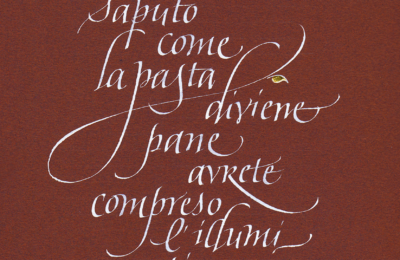 saputo
come
la pasta
diviene
pane
avrete
compreso
l'illumi